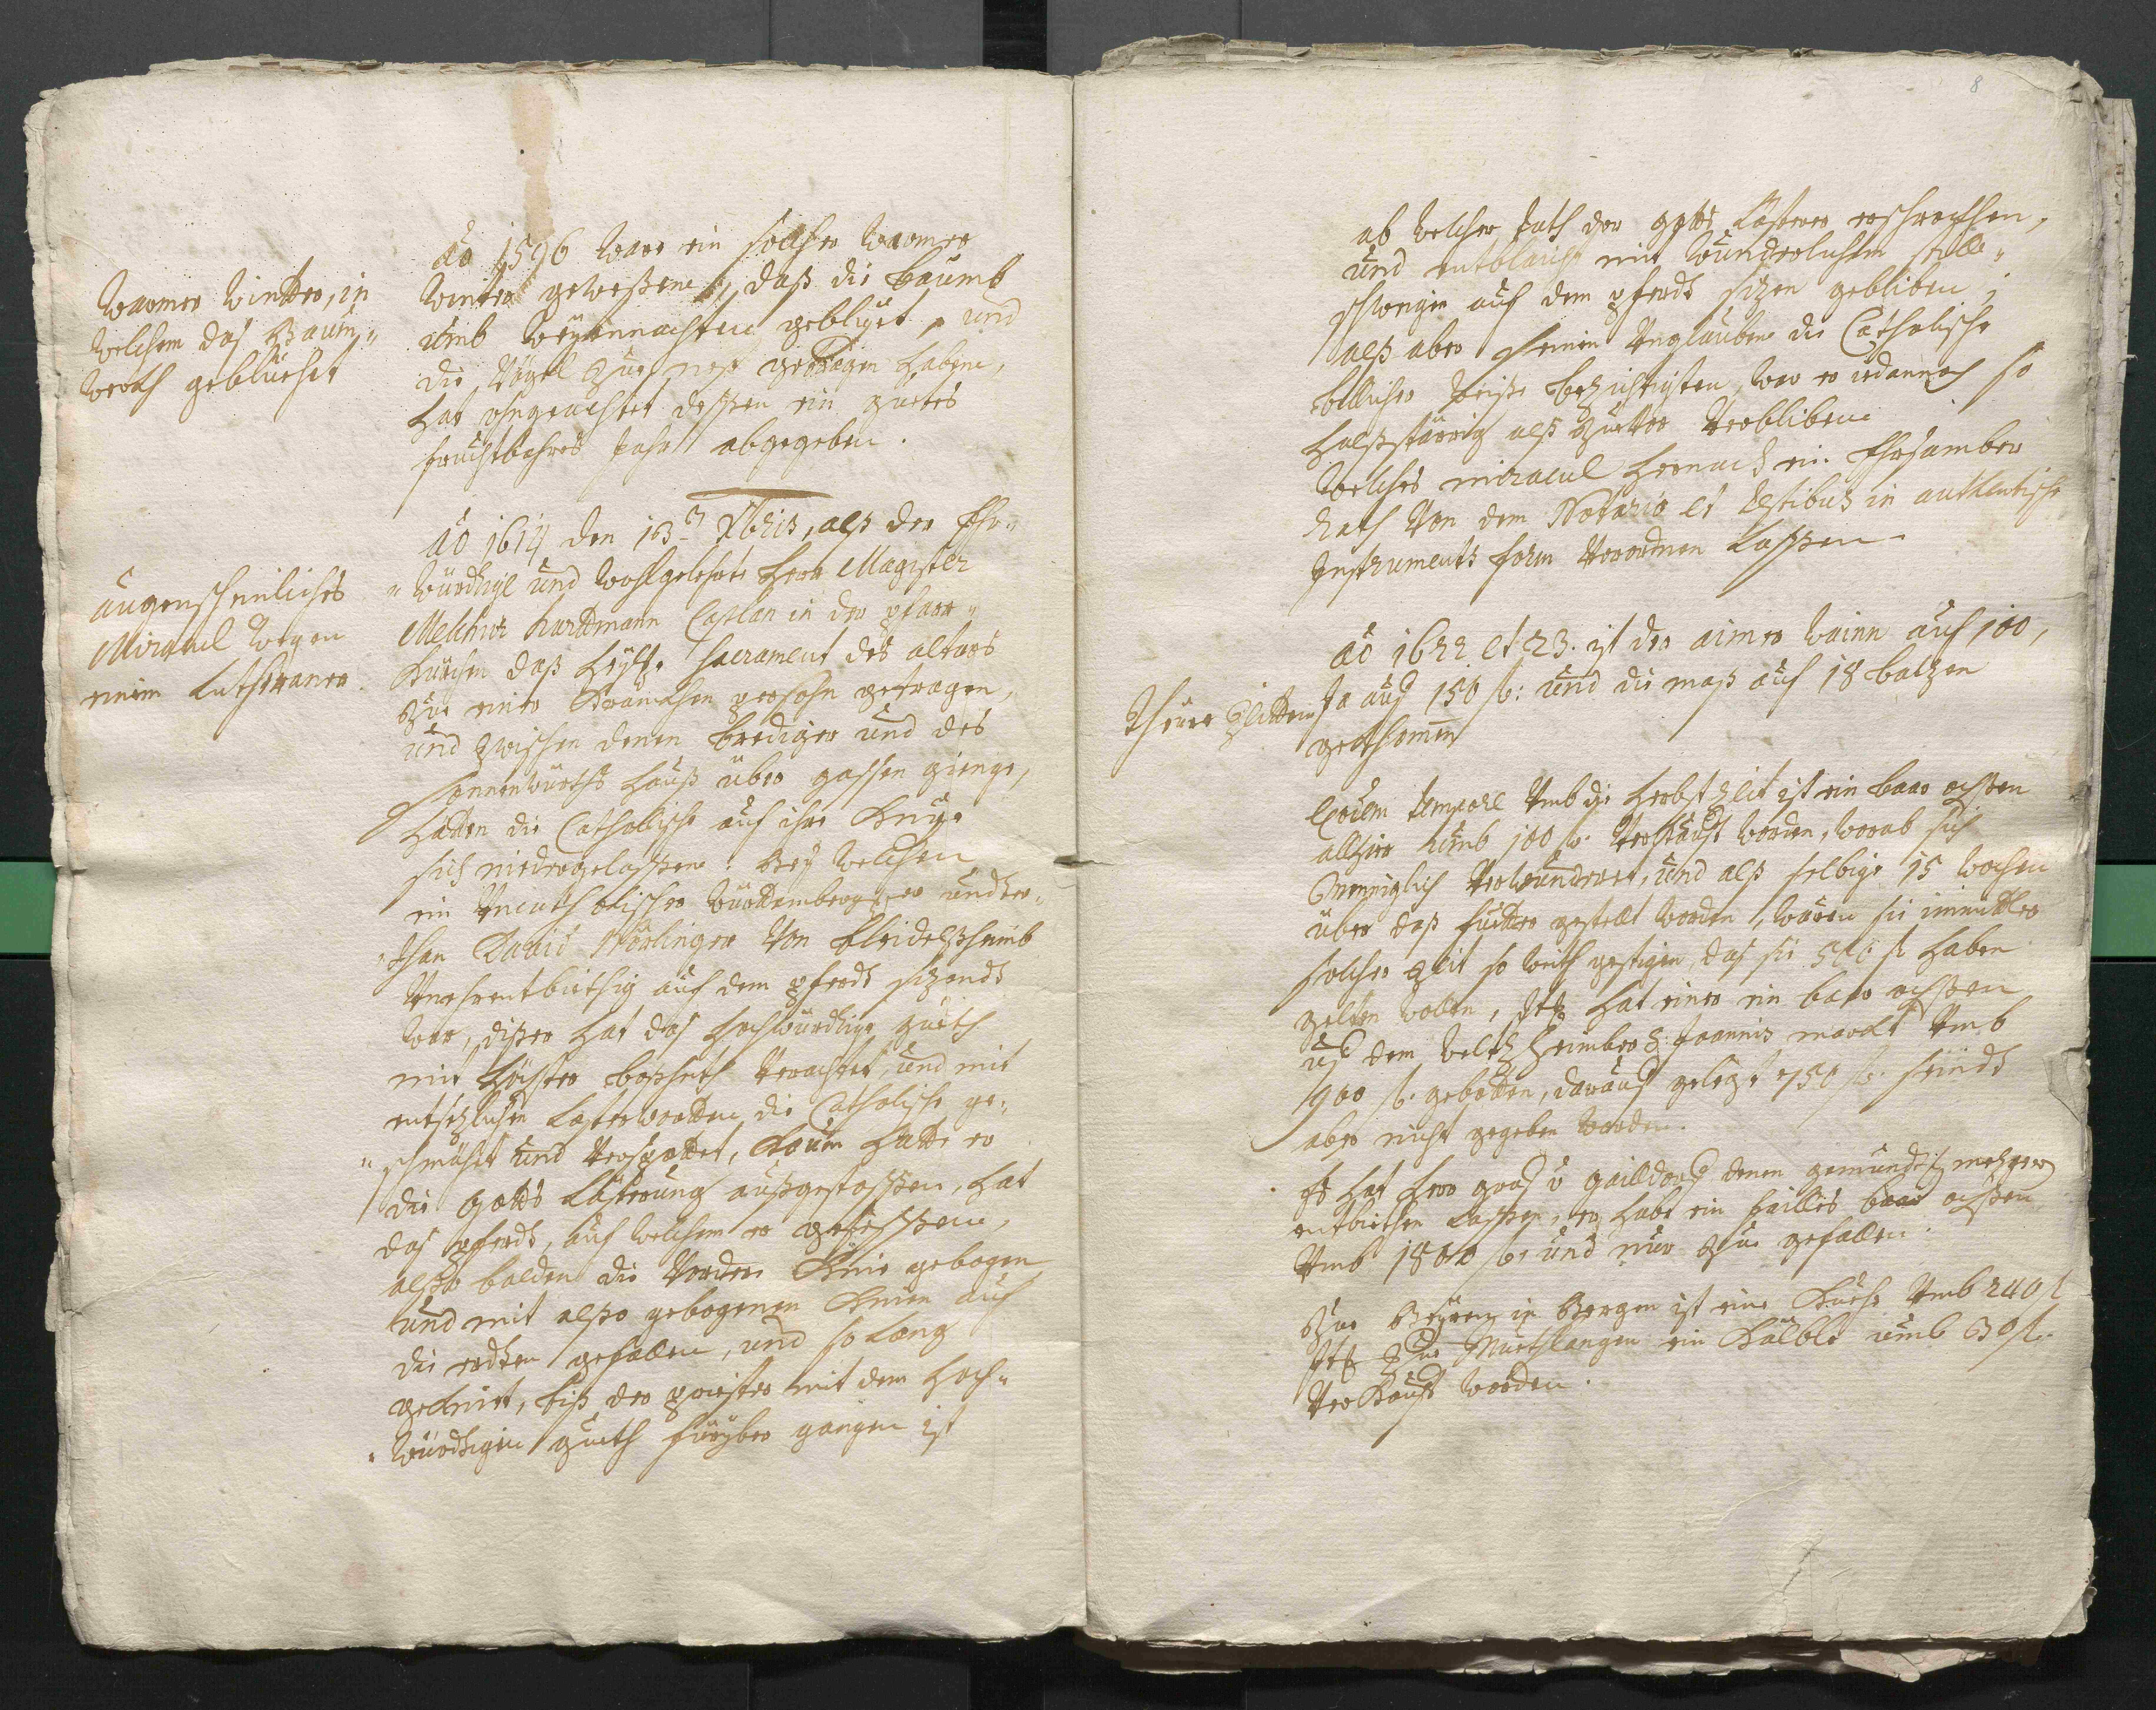 Warmer Winter, in
welchem das Baum„
werck geblüehet
Ao 1596 ware ein sollcher warmer
Winter gewesßene, daß die Baumb
umb Weyennachten geblüet, und
die Vögel zue nest getragen habene,
hat ohngeachtet dessen ein guetes
fruchtbahres Jahr abgegeben.
augenscheinliches
Miracul wegen
einem Lutheraner.
Ao 1614 den 163 Xbris, alß der Ehr„
„würdige und wohlgelehrte Herr Magister
Melchior Hardtmann Caplan in der pfarr„
Kürchen daß heyl. Sacrament des altars
zue einer Krancken persohn getragen,
und zwischen denen Brediger und des
Sonnenwürths hauß über gassen gienge,
hatten die Catholische auf ihre Knye
sich niedergelassene. Bey welchen
ein Uncatholischer Württemberger under„
„than David Nörlinger von Bleidelßheimb
Unehrentbiethig auf dem pferdt sizendt
war, dißer hat das hochwürdige gueth
mit höchster boßheith verachtet, und mit
entsezlichen Lasterwortten die Catholische ge„
„schmähet und verspottet, kaum hatte er
die Gotts Lästerung außgestossßen, hat
das pferdt, auf welchem er gesessßene,
alßo balden die vordere Knie gebogen
und mit alßo gebogenen Knien auf
die erdten gefallen, und so lang
geknüet, biß der priester mit dem hoch„
„würdigen gueth fürüber gangen ist
8
ab welcher that der gotts Lästerer erschrockhen,
und entblaicht mit wunderlichem stille„
schweigen auf dem pferdt sizen gebliben,
alß aber seinen Unglauben die Catholische
billicher weiße bezichtigten, war er iedannoch so
halßstärrig alß zuvor verblibene
welches miracul hernach ein Ehrsamber
Rath von dem Notario et testibus in authentische
Instruments form verordnen Lassßen.
Theure Zeitten
Ao 1622 et 23. ist der aimer wein auf 100,
Ja auf 150 fl: und die maß auf 18 batzen
gekhommen
Eodem tempore umb die herbst Zeit ist ein baar ochßen
allhier umb 100 fl. verkaufft worden, worab sich
Menniglich verwunderet, und alß selbige 15 wochen
über daß fuetter gestelt worden, wären sie inmittler
solcher Zeit so weith gestigen, das sie 500 fl haben
gelten wollen, Itß hat einer ein baar ochßen
uf dem weltzheimber S: Joannis marckt umb
900 fl. gebotten, darauf gelegt 750 fl. seindt
aber nicht gegeben worden.
Es hat Herr graf v gailldorf denen gemündtisch mezger
entbiethen lassßen, er habe ein failles baar ochßen
umb 1800 fl. und nur zue gefallen.
Zue Beyren in Bergen ist eine Kuehe umb 240 f
Itß zue Muethlangen ein Kälble umb 30 fl.
verkauft worden.